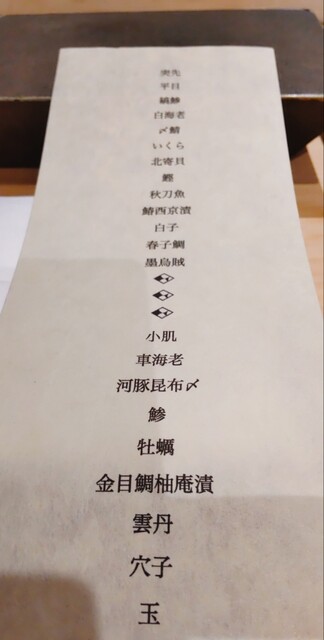 突先
平目
縞鯵
白海老
〆鯖
いくら
北寄貝
鰹
秋刀魚
鰆西京漬
白子
春子鯛
墨烏賊
小肌
車海老
河豚昆布〆
鯵
牡蠣
金目鯛柚庵漬
雲丹
穴子
玉